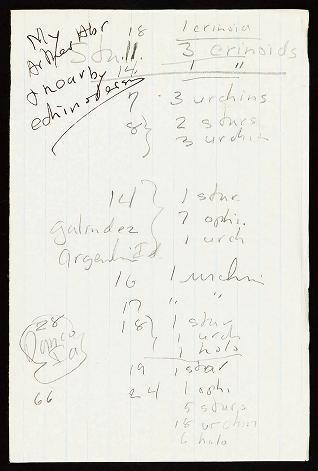 My Abr
Anker
& nearby
echinoderms
18 1 crinoid
11 3 crinoids
14 1 "
7 3 urchins
8} 2 stars
3 urchin
14} 1 star
7 ophi.
1 urch
Galindez
Argentin Isd
16 1 urchin
17 " "
18} 1 star
1 urch
1 holo
28
Isla
66
19 1 star
24 1 ophi
5 stars
18 urchin
6 holo